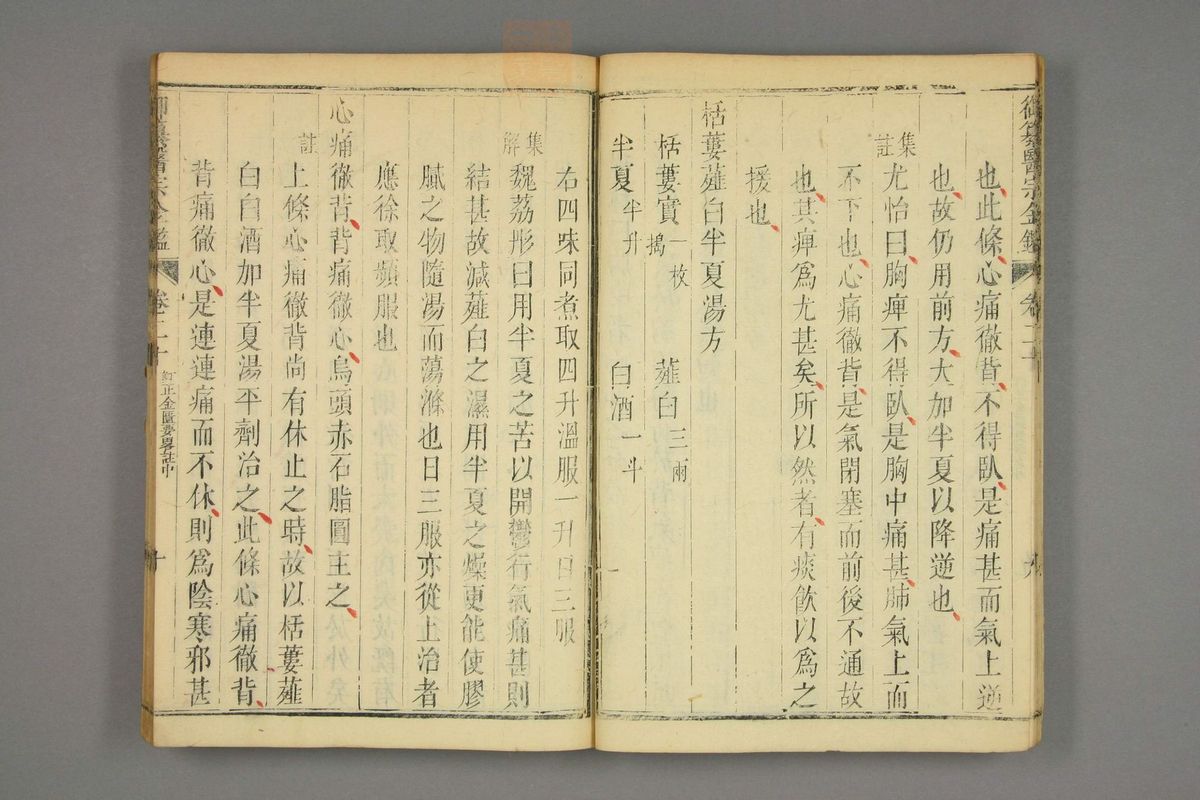 御纂醫宗金鑑 卷二十 九
也此條心痛徹背不得臥是痛甚而氣上逆
也故仍用前方大加半夏以降逆也
集註 尤怡曰胸痺不得臥是胸中痛甚肺氣上而
不下也心痛徹背是氣閉塞而前後不通故
也其痺爲尤甚矣所以然者有痰飮以爲之
援也
栝蔞薤白半夏湯方
栝蔞實一枚搗 薤白三兩
半夏半升 白酒一斗
右四味同煮取四升溫服一升日三服
集解 魏荔彤曰用半夏之苦以開鬱行氣痛甚則
結甚故減薤白之濕用半夏之燥更能使膠
膩之物隨湯而蕩滌也日三服亦從上治者
應徐取頻服也
心痛徹背背痛徹心烏頭赤石脂圓主之
註 上條心痛徹背尚有休止之時故以栝蔞薤
白白酒加半夏湯平劑治之此條心痛徹背
背痛徹心是連連痛而不休則爲陰寒邪甚
御纂醫宗金鑑 卷二十 訂正金匱要畧註中 十